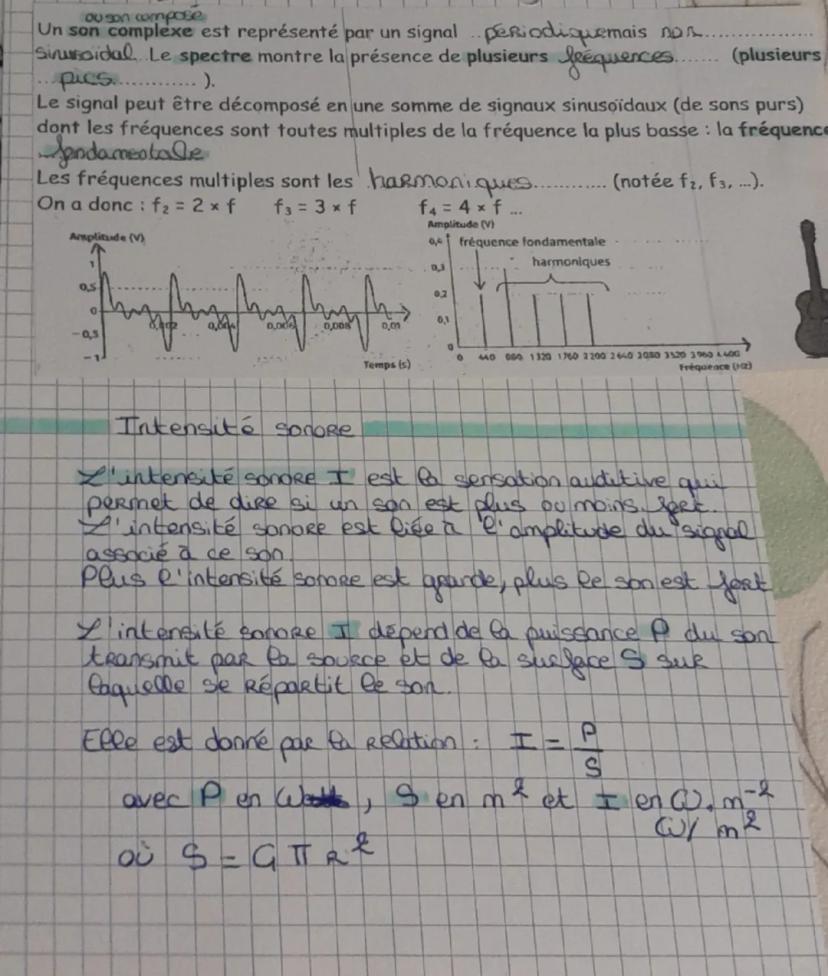 ou son composé
Un son complexe est représenté par un signal ..périodique mais non..................
sinusoïdal. Le spectre montre la présence de plusieurs fréquences....... (plusieurs
... pics.............. ).
Le signal peut être décomposé en une somme de signaux sinusoïdaux (de sons purs)
dont les fréquences sont toutes multiples de la fréquence la plus basse : la fréquence
..fondamentale
Les fréquences multiples sont les harmoniques............ (notée f₂, f₃, ...).
On a donc : f₂ = 2 × f f₃ = 3 × f f₄ = 4 × f ...
Amplitude (V)
1
0,5
0
-0,5
-1
0,002 0,004 0,006 0,008 0,01
Temps (s)
Amplitude (V)
0,4 fréquence fondamentale
0,3 harmoniques
0,2
0,1
0
0 440 880 1320 1760 2200 2640 3080 3520 3960 4400
Fréquence (Hz)
Intensité sonore
L'intensité sonore I est la sensation auditive qui
permet de dire si un son est plus ou moins fort.
L'intensité sonore est liée à l'amplitude du signal
associé à ce son
Plus l'intensité sonore est grande, plus le son est fort
L'intensité sonore I dépend de la puissance P du son
transmit par la source et de la surface S sur
laquelle se répartit le son.
Elle est donné par la relation : I = P/S
avec P en W, S en m² et I en W.m⁻²
W/m²
où S = 4 π R²